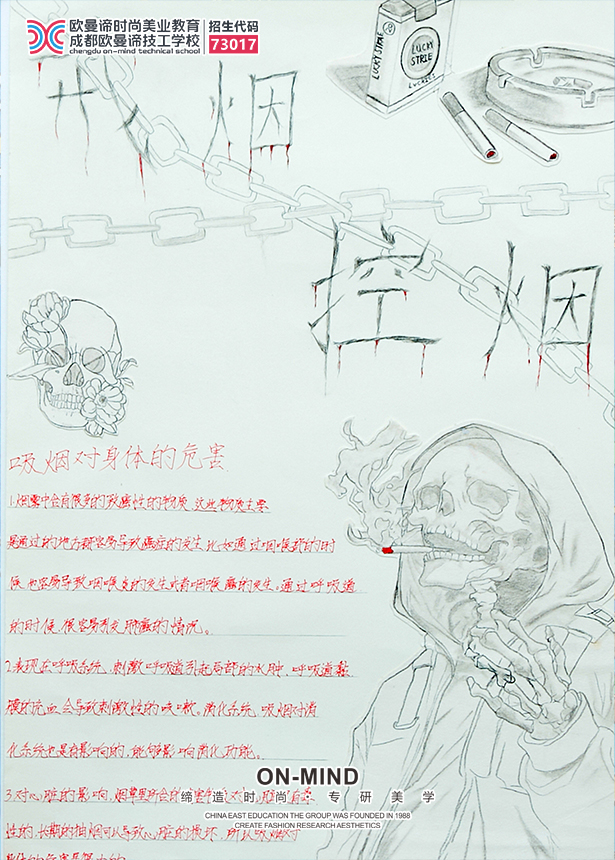 欧曼谛时尚美业教育
成都欧曼谛技工学校
chengdu on-mind technical school
招生代码
73017
LUCKY STRIE
LUCKY
STRIE
LUCKIES
戒烟
控烟
吸烟对身体的危害
1.烟雾中含有很多的致癌性的物质,这些物质主要
是通过的地方都容易导致癌症的发生比如通过咽喉部的时
候也容易导致咽喉炎的发生或者咽喉癌的发生。通过呼吸道
的时候很容易引发肺癌的情况。
2.表现在呼吸系统,刺激呼吸道引起局部的水肿、呼吸道黏
膜的充血,会导致刺激性的咳嗽。消化系统,吸烟对消
化系统也是有影响的,能够影响消化功能。
3.对心脏的影响,烟草里
性的,长期的抽烟可以导致心脏的损坏,所以吸烟对
ON-MIND
缔造时尚 专研美学
CHINA EAST EDUCATION THE GROUP WAS FOUNDED IN 1988
CREATE FASHION RESEARCH AESTHETICS